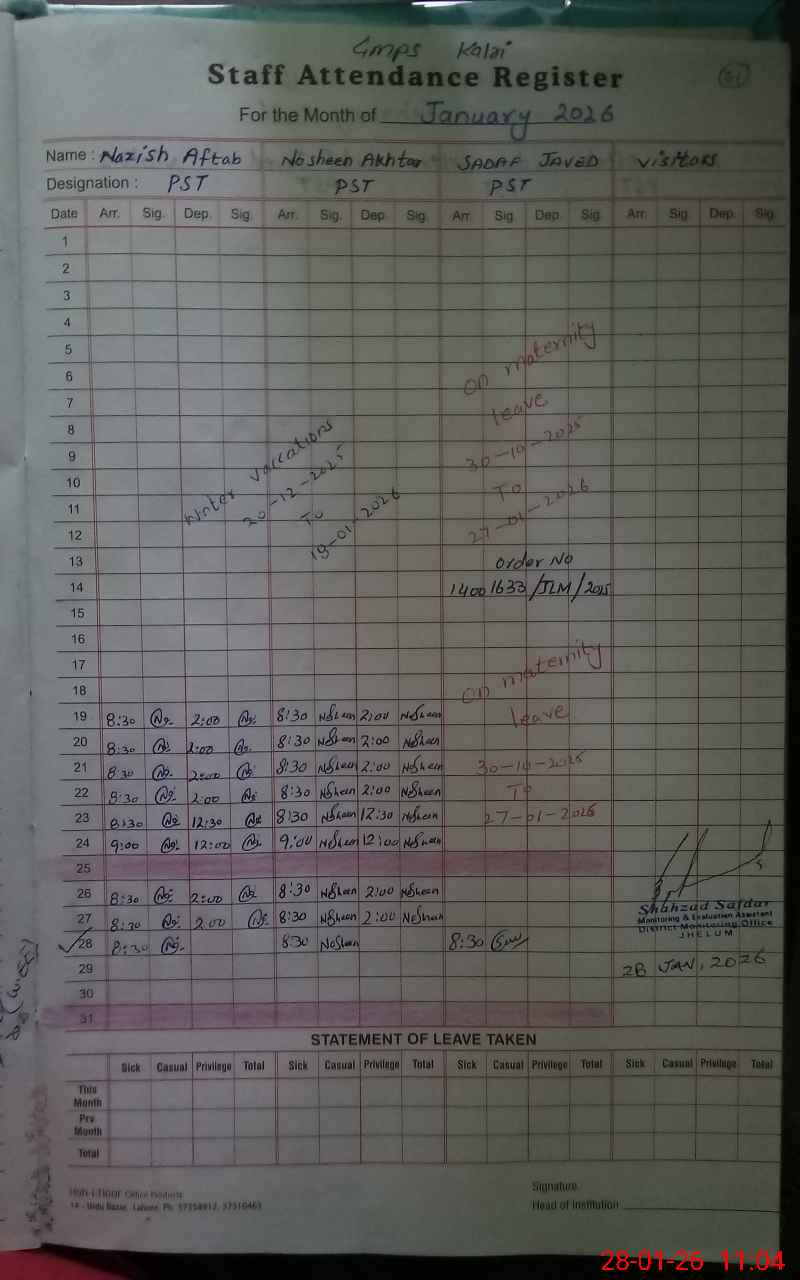 GMPS Kalai
Staff Attendance Register
For the Month of January 2026
Name : Nazish Aftab Nosheen Akhtar SADAF JAVED visitors
Designation : PST PST PST
Date Arr. Sig. Dep. Sig. Arr. Sig. Dep. Sig. Arr. Sig. Dep. Sig. Arr. Sig. Dep. Sig.
1
2
3
4
5
6
7
8
9
10
11
12
13
14
15
16
17
18
on maternity
leave
30-10-2025
To
27-01-2026
Winter vaccations
20-12-2025
To
19-01-2026
order No
14001633/JLM/2025
on maternity
leave
19 8:30 2:00 8:30 NoSheen 2:00 NoSheen
20 8:30 2:00 8:30 NoSheen 2:00 NoSheen
21 8:30 2:00 8:30 NoSheen 2:00 NoSheen 30-10-2025
22 8:30 2:00 8:30 NoSheen 2:00 NoSheen To
23 8:30 12:30 8:30 NoSheen 12:30 NoSheen 27-01-2026
24 9:00 12:00 9:00 NoSheen 12:00 NoSheen
25
26 8:30 2:00 8:30 NoSheen 2:00 NoSheen
27 8:30 2:00 8:30 NoSheen 2:00 NoSheen
28 8:30 8:30 NoSheen 8:30
Shahzad Safdar
Monitoring & Evaluation Assistant
District Monitoring Office
JHELUM
29 28 JAN, 2026
30
31
STATEMENT OF LEAVE TAKEN
Sick Casual Privilege Total Sick Casual Privilege Total Sick Casual Privilege Total Sick Casual Privilege Total
This Month
Prv. Month
Total
Signature
Head of Institution
Office Products
14 - Urdu Bazar, Lahore. Ph: 37358912, 37310463
28-01-26 11:04